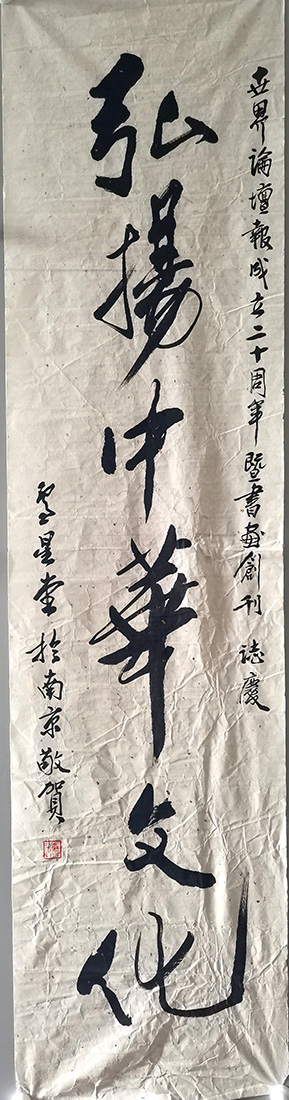 世界論壇報成立二十周年暨書画創刊 誌慶
弘揚中華文化
星堂於南京敬賀